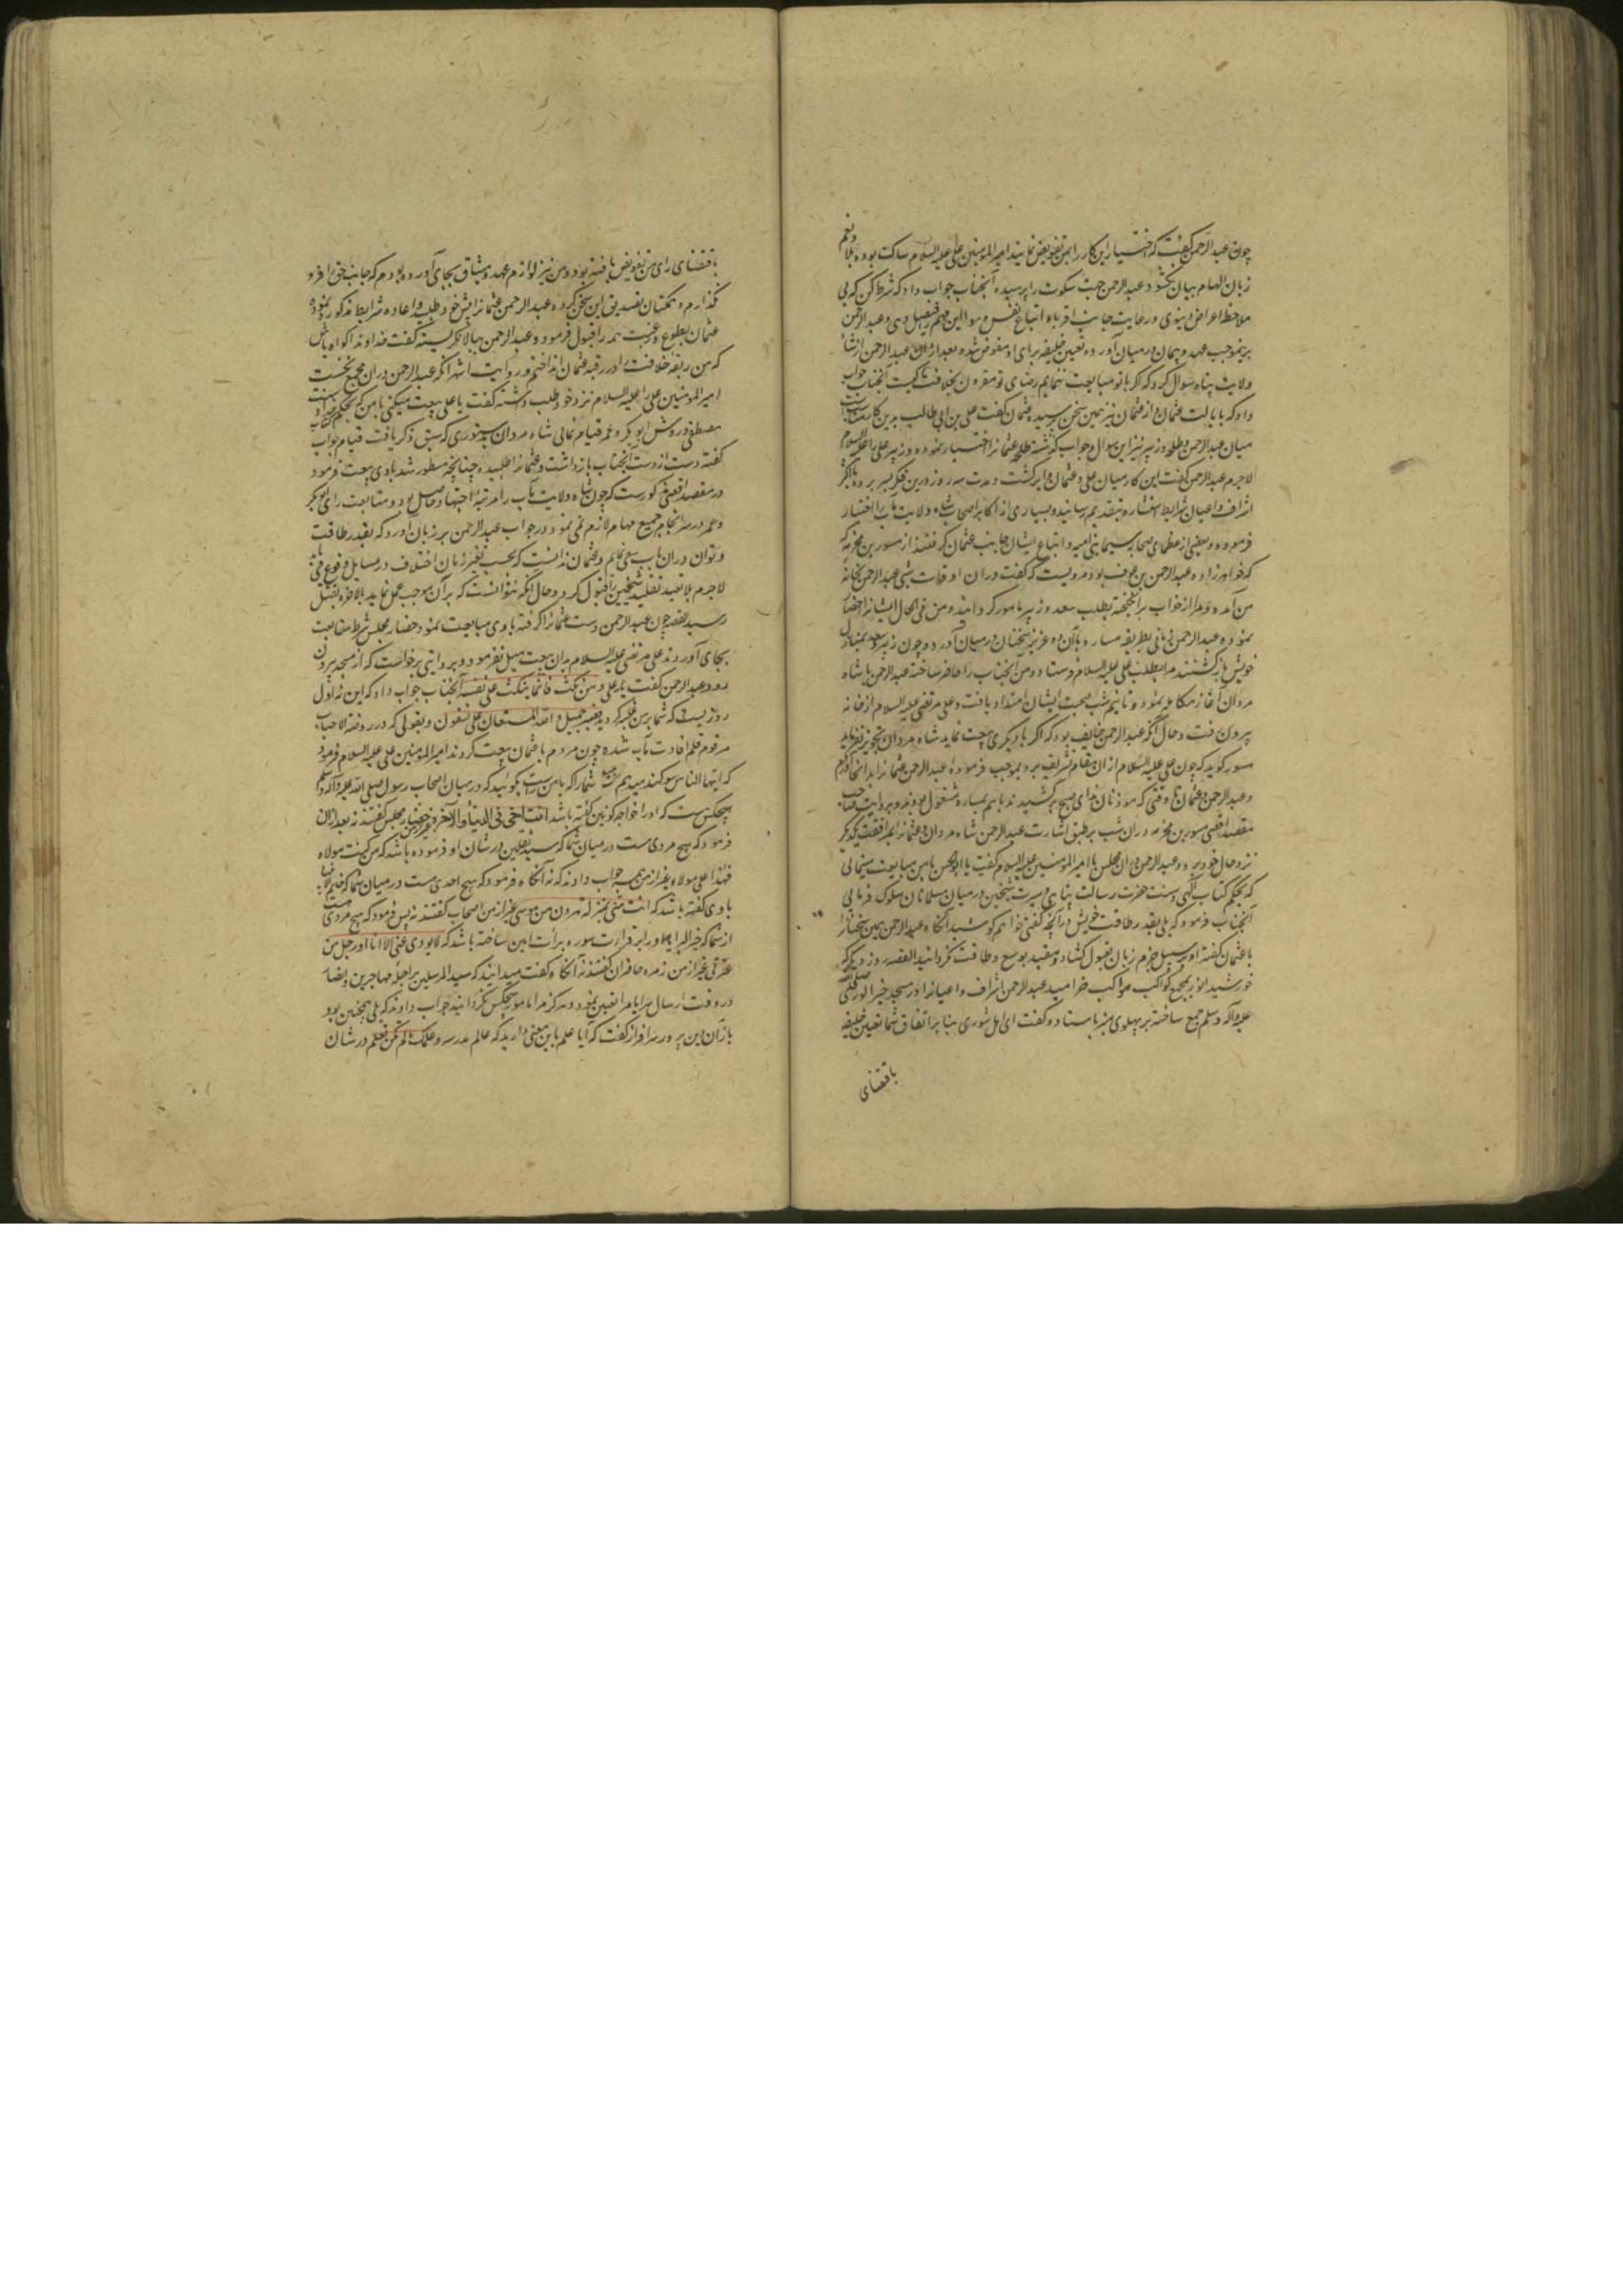 چون عبدالرحمن گفت که اختیار این کار را بمن تفویض نمایند امیرالمؤمنین علی علیه السلام ساکت بوده بلا و نعم
زبان الهام بیان نکشود عبدالرحمن جهت سکوت را پرسیده آنجناب جواب داد که شرط کن که بی
ملاحظه اعراض دنیوی و رعایت جانب اقربا و اتباع نفس و هوا این مهم فیصل دهی و عبدالرحمن
برینموجب عهد و پیمان درمیان آورده تعیین خلیفه برای او مفوض شد و بعد ازان عبدالرحمن از شاه
ولایت پناه سوال کرد که اگر با تو مبایعت ننمایم رضای تو مقرون بخلافت کیست آنجناب جواب
داد که بایالت عثمان و از عثمان نیز همین سخن پرسیده عثمان گفت علی بن ابی طالب بدین کار
میان عبدالرحمن و طلحه و زبیر نیز این سوال و جواب گذشته طلحه عثمانرا اختیار نموده و زبیر علی را علیه السلام
لاجرم عبدالرحمن گفت این کار میان علی و عثمان دایر گشت و مدت سه روز درین فکر بسر برده با اکثر
اشراف و اعیان شرایط استشاره بتقدیم رسانید و بسیاری از اکابر اصحاب شاه ولایت مآب را اختیار
فرموده و بعضی از عظمای صحابه سیما بنی امیه و اتباع ایشان جانب عثمان گرفتند از مسور بن مخرمه
که خواهرزاده عبدالرحمن بن عوف بود مرویست که گفت دران اوقات شبی عبدالرحمن بخانه
من آمده و مرا از خواب برانگیخته بطلب سعد و زبیر مامور گردانید و من فی الحال ایشانرا احضار
نموده عبدالرحمن زمانی بطریقه مساره باآن دو عزیز سخنان درمیان آورد و چون زبیر و سعد بمنازل
خویش بازگشتند مرا بطلب علی علیه السلام فرستاد و من آنجناب را حاضر ساخته عبدالرحمن با شاه
مردان آغاز مکالمه نمود و تا نیم شب صحبت ایشان امتداد یافت و علی مرتضی علیه السلام از خانه
بیرون رفت و حال آنکه عبدالرحمن خایف بود که اگر با دیگری بیعت نماید شاه مردان تجویز نفرماید
مسور گوید که چون علی علیه السلام از ان مقام تشریف برد بموجب فرموده عبدالرحمن عثمانرا بدانجا آوردم
و عبدالرحمن و عثمان تا وقتی که موذنان ندای صبح برکشیدند باهم بمساره مشغول بودند و بروایت صاحب
مقصد اقصی مسور بن مخرمه دران شب برطبق اشارت عبدالرحمن شاه مردان و عثمانرا بمرافقت یکدیگر
نزد خال خود برده عبدالرحمن دران مجلس با امیرالمؤمنین علیه السلام گفت یا ابوالحسن بامن مبایعت مینمائی
که بحکم کتاب الهی و سنت حضرت رسالت پناهی و سیرت شیخین درمیان مسلمانان سلوک فرمائی
آنجناب فرمود که بلی بقدر طاقت خویش درآنچه گفتی خواهم کوشید آنگاه عبدالرحمن همین سخنانرا
با عثمان گفته او بر سبیل جزم زبان بقبول گشاد و مقید بوسع و طاقت نگردانید القصه روز دیگر که
خورشید انور بمجمع کواکب مواکب خرامید عبدالرحمن اشراف و اعیانرا در مسجد خیر الوری صلی الله
علیه و آله وسلم جمع ساخته بر پهلوی منبر باستاد و گفت ای اهل شوری بنا بر اتفاق شما تعیین خلیفه
باقتضای
باقتضای رای من تفویض یافته بود و من نیز لوازم عهد و میثاق بجای آورده بودم که جانب حق را فرو
نگذارم و همگنان تصدیق این سخن کرده عبدالرحمن عثمانرا پیش خود طلبید و اعاده شرایط مذکور نموده
عثمان بطوع و رغبت همه را قبول فرمود و عبدالرحمن ببالا نگریسته گفت خداوندا گواه باش
که من ربقه خلافت را در رقبه عثمان انداختم و روایت اشهر آنکه عبدالرحمن دران مجمع نخست
امیرالمؤمنین علی را علیه السلام نزد خود طلب داشته گفت یا علی بیعت میکنی با من که بحکم کتاب و سنت
مصطفی و روش ابوبکر و عمر قیام نمائی شاه مردان بدستوری که سبق ذکر یافت قیام بجواب
گفته دست از دست آنجناب بازداشت و عثمانرا طلبیده چنانچه مسطور شد با وی بیعت فرمود
در مقصد اقصی مذکورست که چون شاه ولایت مآب را مرتبه اجتهاد حاصل بود و متابعت رای ابوبکر
و عمر در سرانجام جمیع مهام لازم نمی نمود در جواب عبدالرحمن بر زبان آورد که بقدر طاقت
و توان دران باب سعی نمایم و عثمان ندانست که بحسب تغیر زمان اختلاف در مسایل وقوع می یابد
لاجرم بلا تقید تقلید شیخین را قبول کرد و حال آنکه نتوانست که برآن موجب عمل نماید بالآخره بقتل
رسید القصه چون عبدالرحمن دست عثمانرا گرفته با وی مبایعت نمود حضار مجلس شرط متابعت
بجای آوردند علی مرتضی علیه السلام بدان بیعت میل نفرمود و بروایتی برخواست که از مسجد بیرون
رود عبدالرحمن گفت یا علی و من نکث فانما ینکث علی نفسه آنجناب جواب داد که این نه اول
روزیست که شما برمن غلبه کردید فصبر جمیل و الله المستعان علی ما تصفون و بقولی که در روضة الاحباب
مرقوم قلم افادت مآب شده چون مردم با عثمان بیعت کردند امیرالمؤمنین علی علیه السلام فرمود
که ایها الناس سوگند میدهم شما را که بامن راست بگوئید که درمیان اصحاب رسول صلی الله علیه و آله وسلم
هیچکس هست که او را خواجه کونین گفته باشد انت اخی فی الدنیا و الآخرة غیر از من حضار مجلس گفتند نه بعد ازان
فرمود که هیچ مردی هست درمیان شما که سید ثقلین درشان او فرموده باشد که من کنت مولاه
فهذا علی مولاه بغیر از من همه جواب دادند که نه آنگاه فرمود که هیچ احدی هست درمیان شما که خاتم انبیا
با وی گفته باشد که انت منی بمنزلة هرون من موسی غیر از من اصحاب گفتند نه پس فرمود که هیچ مردی هست
از شما که خیر البرایا او را بر قراءت سوره براءت امین ساخته باشد که لا یودی عنی الا انا او رجل من
عترتی غیر از من زمره حاضران گفتند نه آنگاه گفت میدانید که سید المرسلین بر اجله مهاجرین و انصار
در وقت ارسال سرایا مرا تعیین نمود و هرگز مرا مامور هیچکس نگردانید جواب دادند که بلی همچنین بود
باز آن دین پرور سرافراز گفت که آیا علم باین معنی دارید که عالم مدرسه و علمک ما لم تکن تعلم درشان